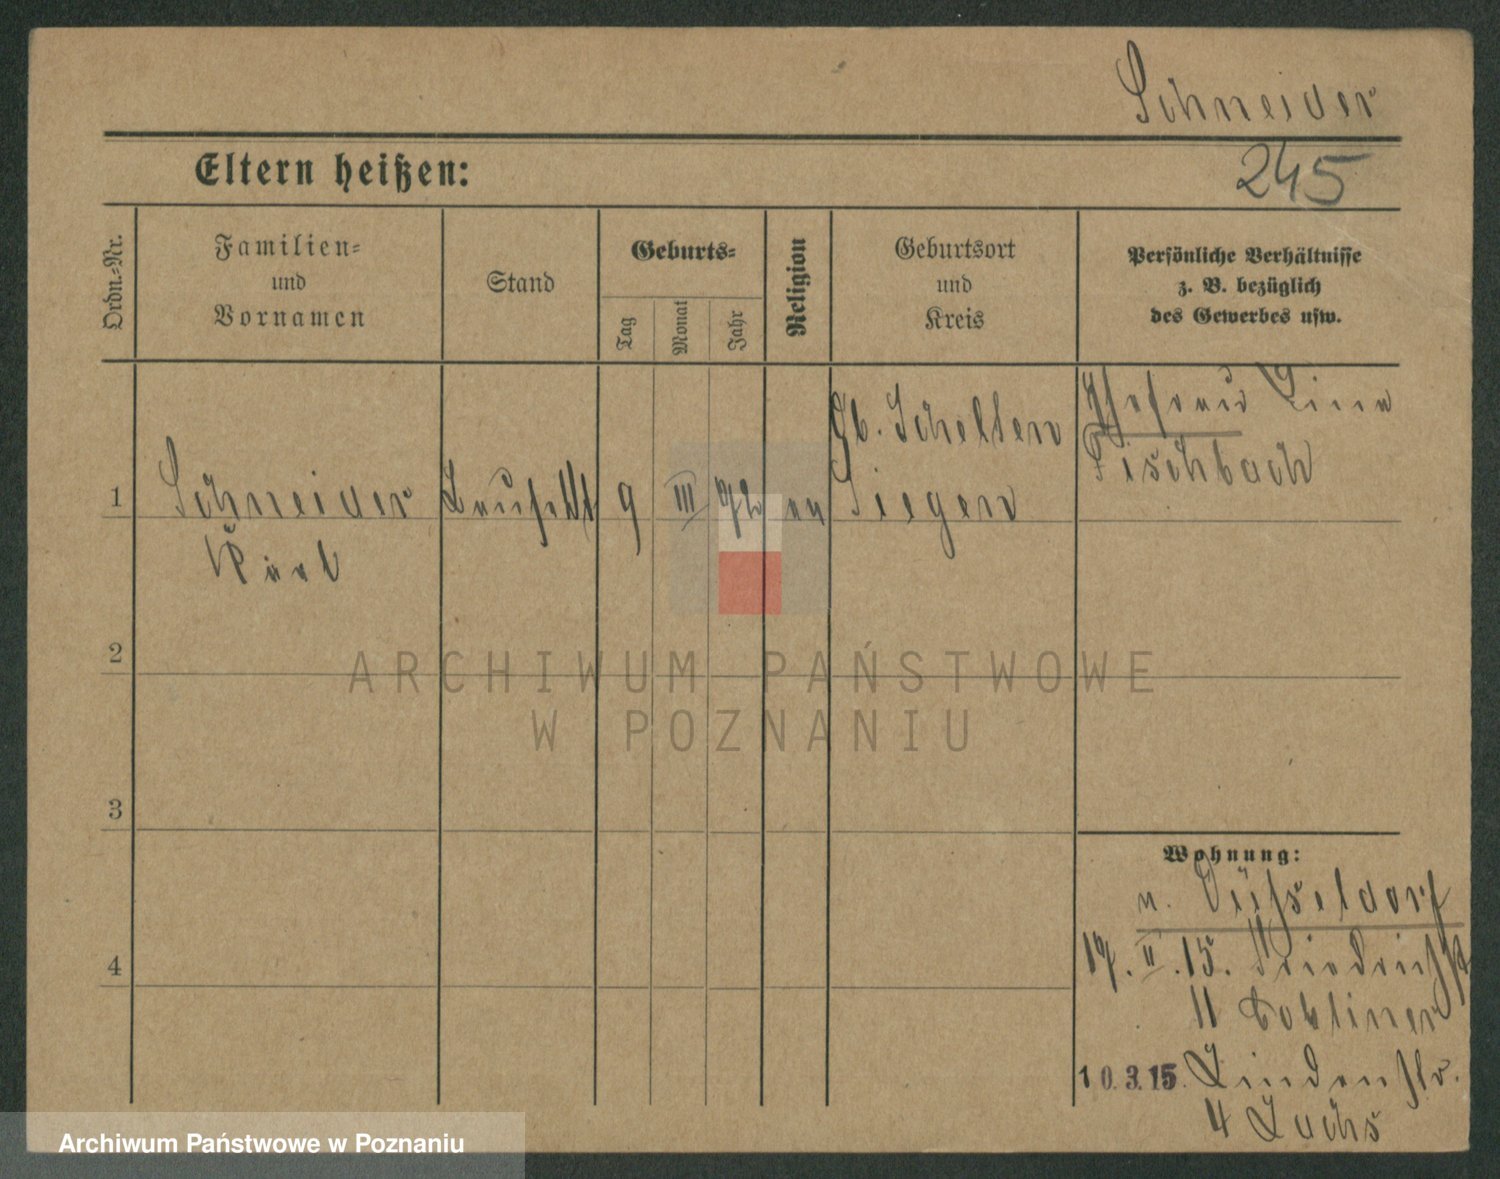 Schneider
245
Eltern heißen:
Ordn.-Nr.
Familien-
und
Vornamen
Stand
Geburts-
Tag
Monat
Jahr
Religion
Geburtsort
und
Kreis
Persönliche Verhältnisse
z. B. bezüglich
des Gewerbes usw.
1
Schneider
Karl
9
III
72
ev
Schelten
Siegen
Ehefrau Lina
Fischbach
2
3
4
ARCHIWUM PAŃSTWOWE
W POZNANIU
Wohnung:
n. Düsseldorf
17. II. 15. Friedrichstr
11
10.3.15. Lindenstr.
4
Archiwum Państwowe w Poznaniu